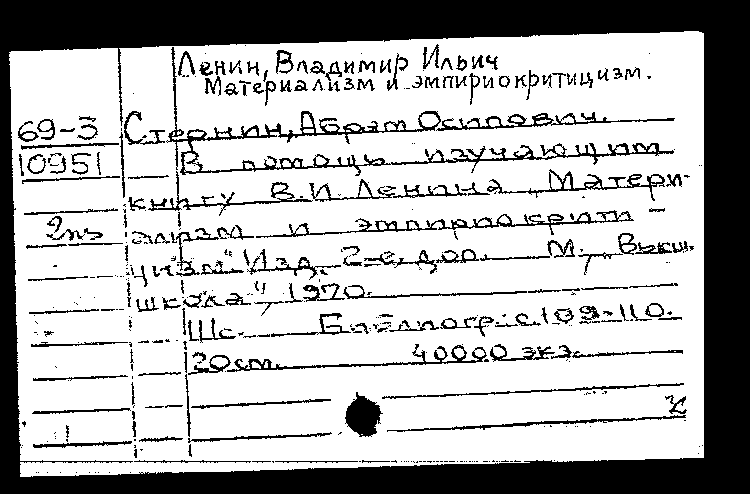 Ленин, Владимир Ильич
Материализм и эмпириокритицизм.
69-3 Стернин, Абрам Осипович.
10951 В помощь изучающим
книгу В.И. Ленина „Матери-
2 алризм и эмпириокрити-
цизм". Изд. 2-е, доп. М., „Высш.
школа", 1970.
111с. Библиогр.: с. 109-110.
20 см. 40000 экз.